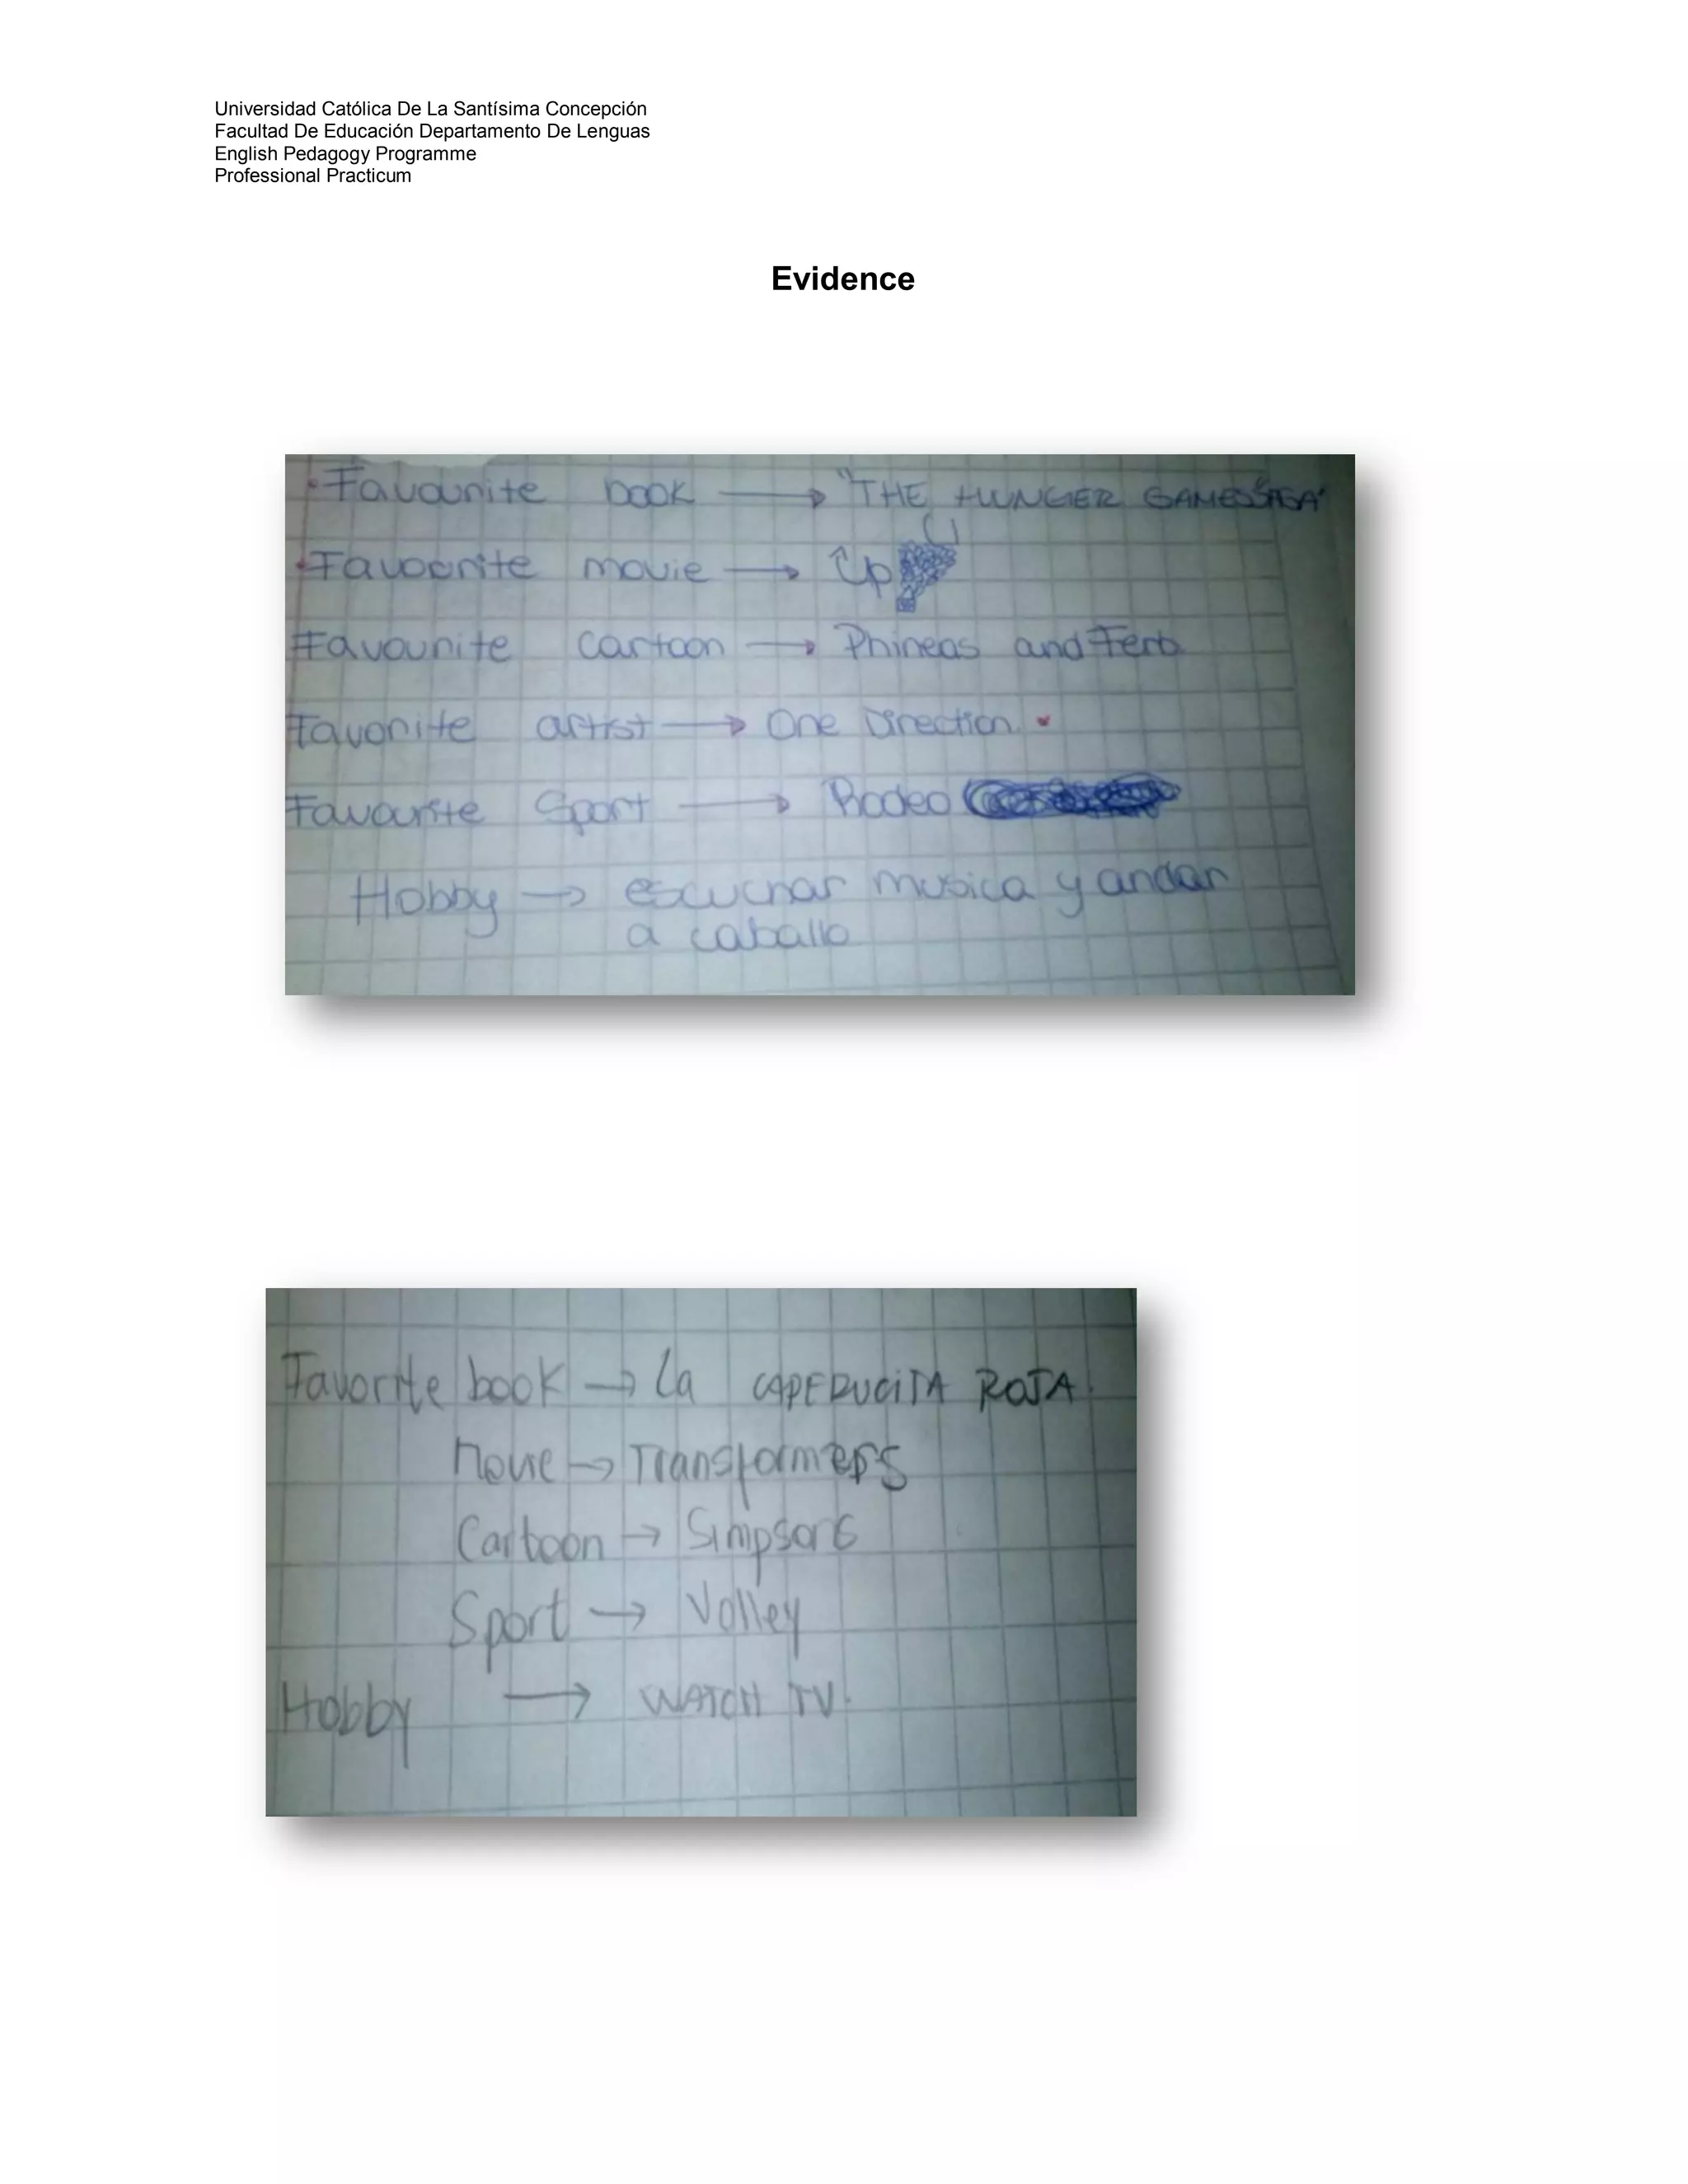 Universidad Católica De La Santísima Concepción
Facultad De Educación Departamento De Lenguas
English Pedagogy Programme
Professional Practicum
Evidence
Favourite book → "THE HUNGER GAMES" SAGA
Favourite movie → Up
Favourite Cartoon → Phineas and Ferb
Favorite artist → One Direction.
Favourite Sport → Rodeo
Hobby → escuchar musica y andar
a caballo
Favorite book → La CAPERUCITA ROJA.
Movie → Transformers
Cartoon → Simpsons
Sport → Volley
Hobby → WATCH TV.